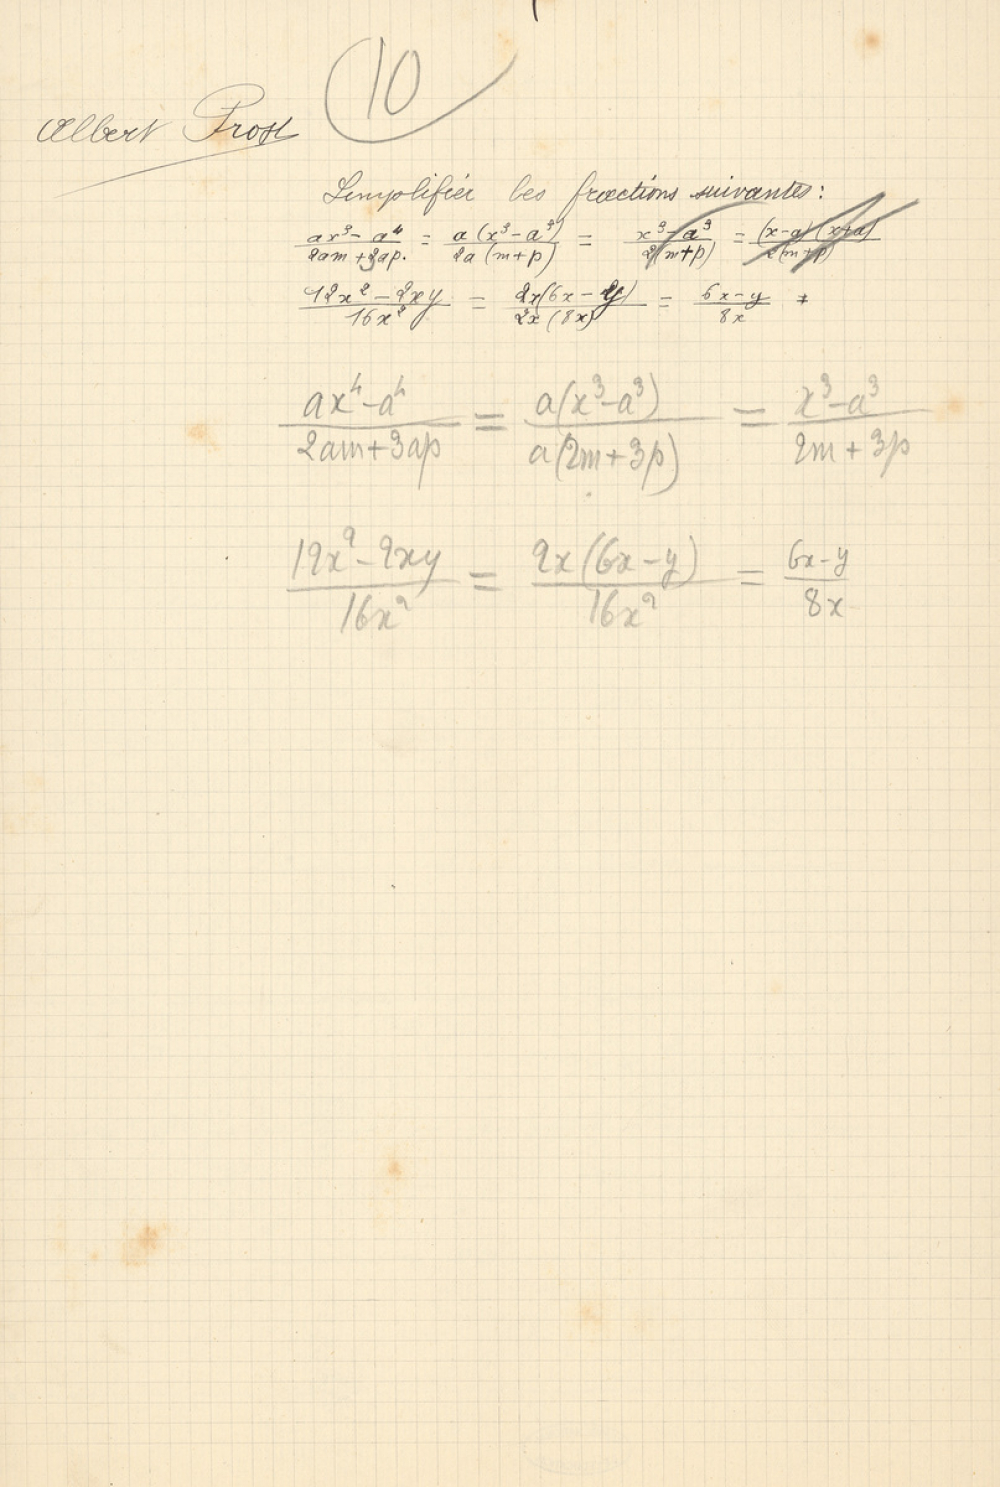 10
Albert Prost
Simplifier les fractions suivantes :
(ax³ - a⁴)/(2am + 3ap.) = a(x³ - a³)/2a(m+p) = (x³ - a³)/2(m+p) = (x-a)(x+a)/2(m+p)
(12x² - 2xy)/16x² = 2x(6x - y)/2x(8x) = (6x - y)/8x
(ax⁴ - a⁴)/(2am + 3ap) = a(x³ - a³)/a(2m + 3p) = (x³ - a³)/(2m + 3p)
(12x² - 2xy)/16x² = 2x(6x - y)/16x² = (6x - y)/8x